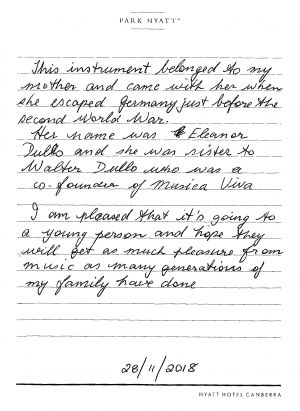 PARK HYATT™
This instrument belonged to my
mother and came with her when
she escaped Germany just before the
second World War.
Her name was Eleanor
Dullo and she was sister to
Walter Dullo who was a
co-founder of Musica Viva
I am pleased that it's going to
a young person and hope they
will get as much pleasure from
music as many generations of
my family have done
28/11/2018
HYATT HOTEL CANBERRA